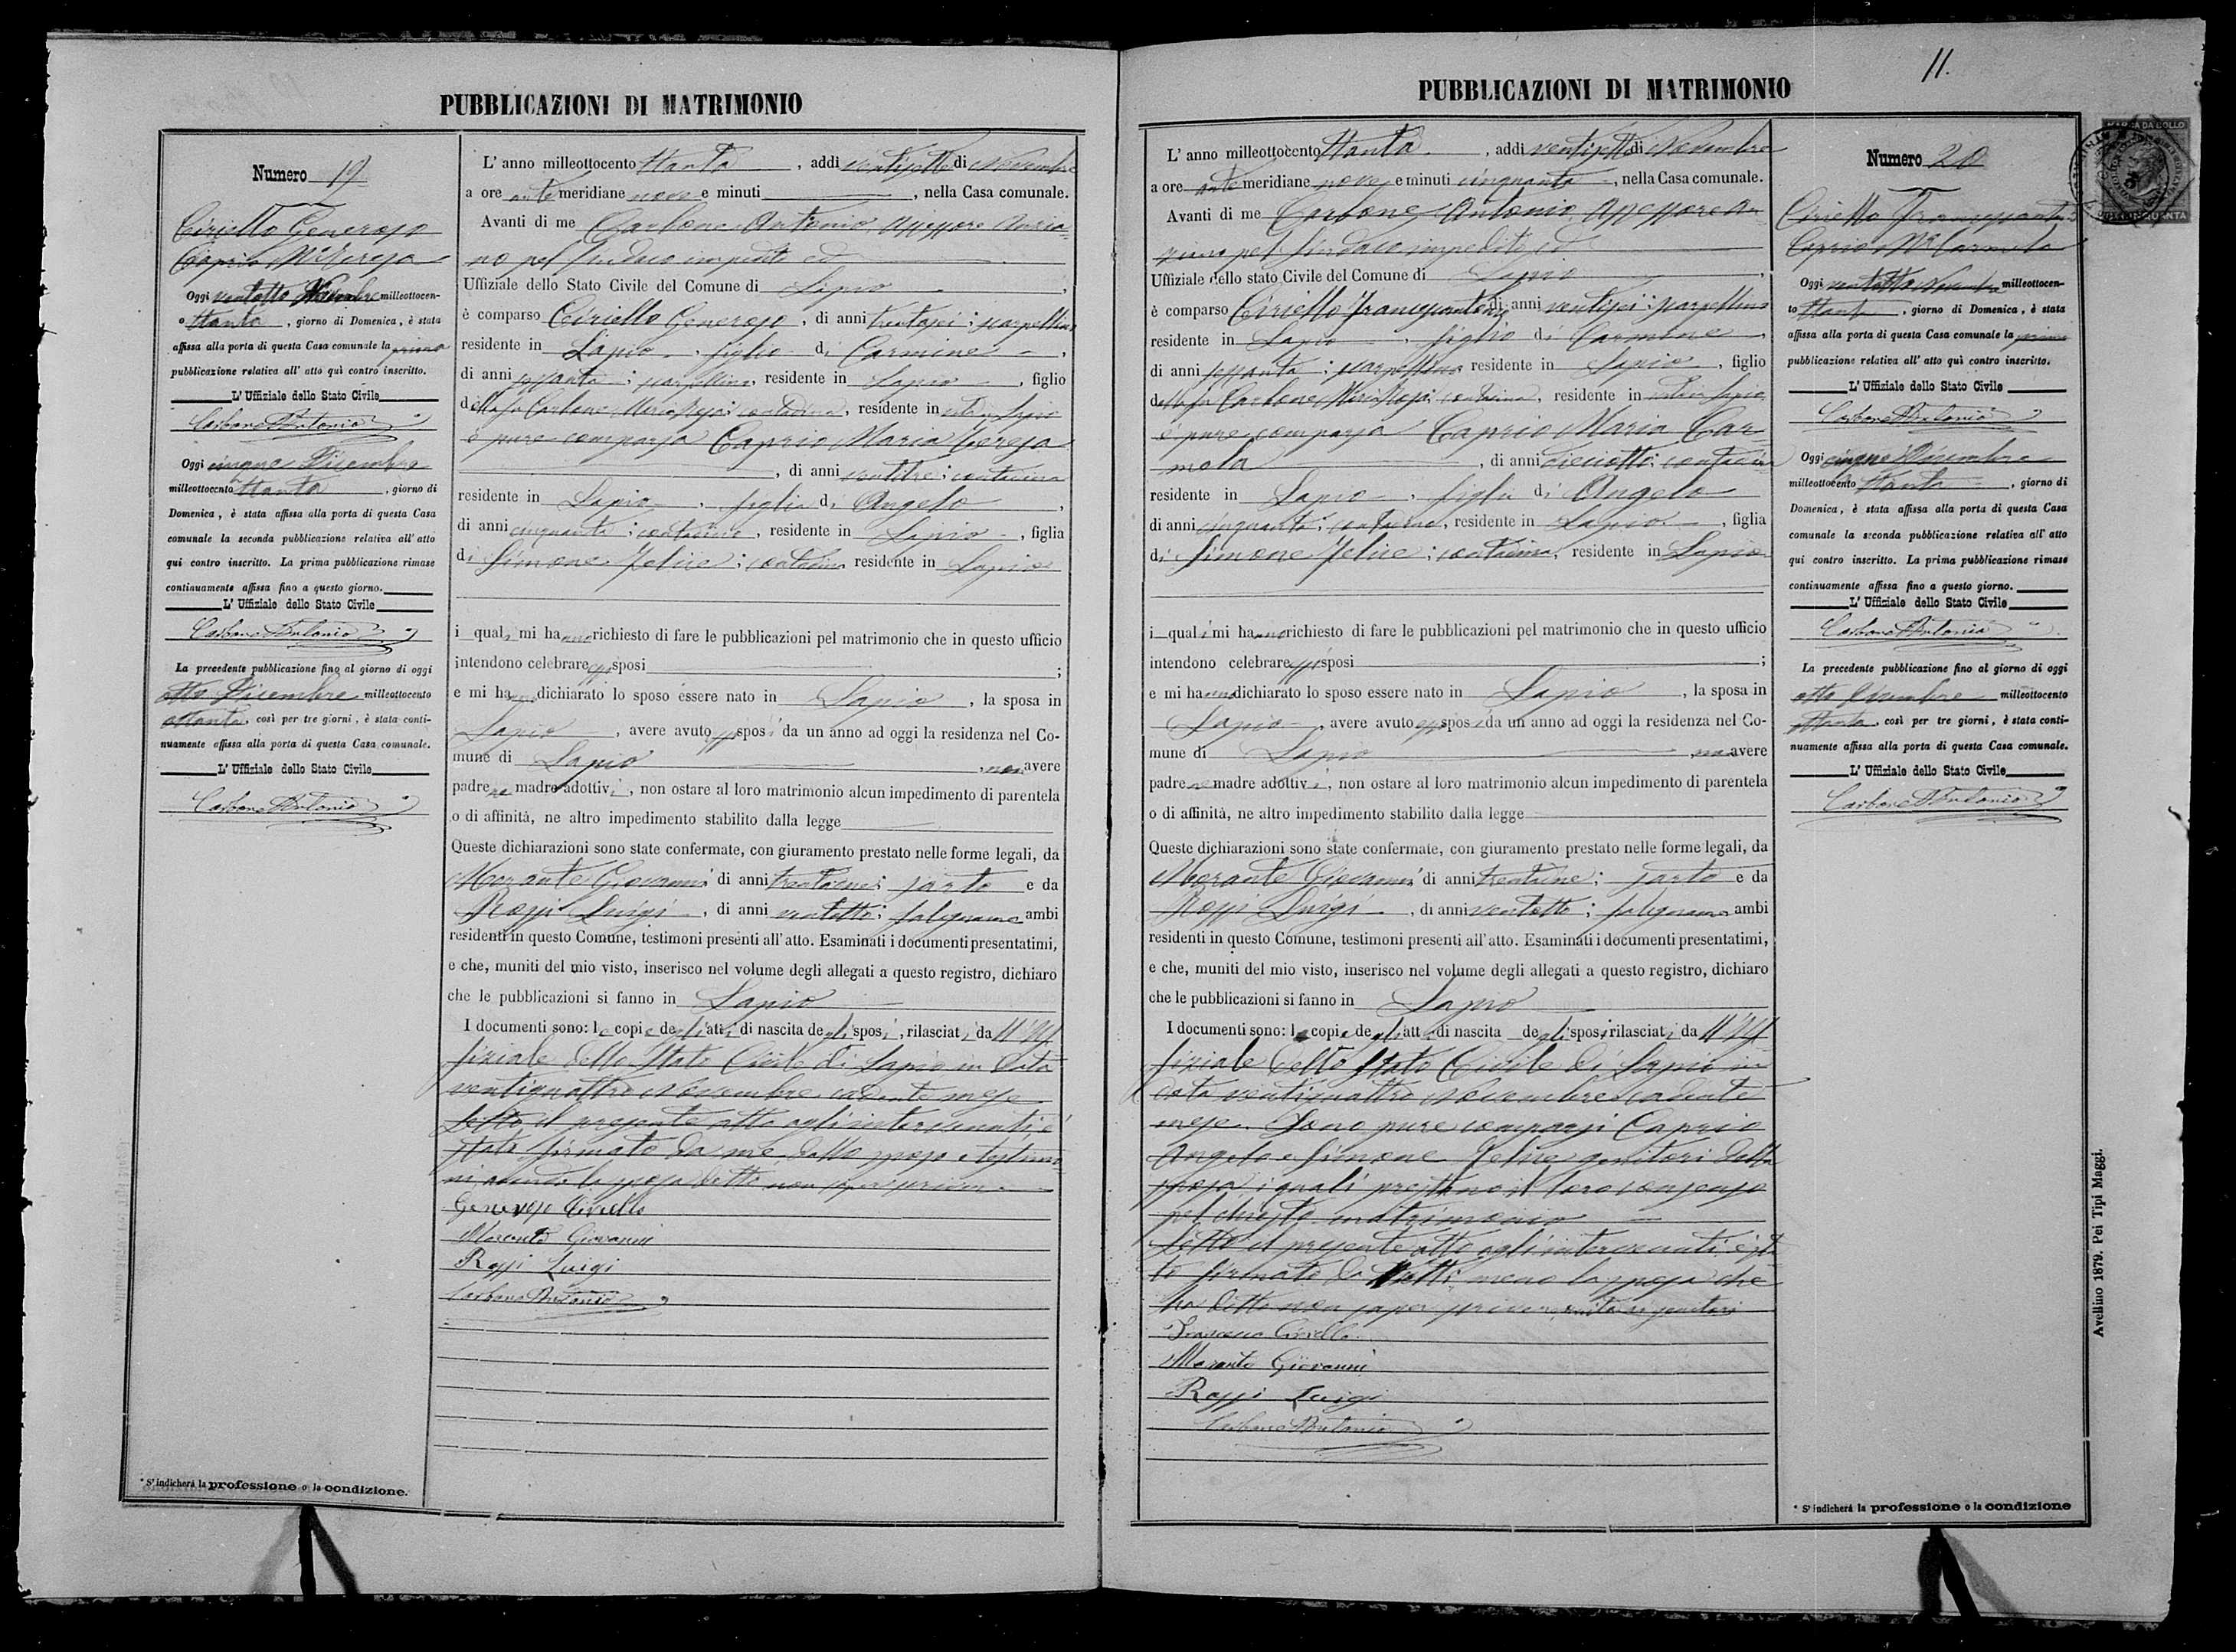 PUBBLICAZIONI DI MATRIMONIO
Numero 19
Ciriello Generoso
Caprio Ma Teresa
Oggi ventotto Novembre milleottocen-
o ttanta, giorno di Domenica, è stata
affissa alla porta di questa Casa comunale la prima
pubblicazione relativa all' atto quì contro inscritto.
L' Uffiziale dello Stato Civile
Carbone Antonio
Oggi cinque Dicembre
milleottocento ttanta, giorno di
Domenica, è stata affissa alla porta di questa Casa
comunale la seconda pubblicazione relativa all' atto
qui contro inscritto. La prima pubblicazione rimase
continuamente affissa fino a questo giorno.
L' Uffiziale dello Stato Civile
Carbone Antonio
La precedente pubblicazione fino al giorno di oggi
otto Dicembre milleottocento
ottanta, così per tre giorni, è stata conti-
nuamente affissa alla porta di questa Casa comunale.
L' Uffiziale dello Stato Civile
Carbone Antonio
* S' indicherà la professione o la condizione.
L' anno milleottocento ttanta, addi ventisette di Novembre
a ore antemeridiane nove e minuti, nella Casa comunale.
Avanti di me Carbone Antonio Assessore Anzia-
no pel Sindaco impedito ed
Uffiziale dello Stato Civile del Comune di Lapio,
è comparso Ciriello Generoso, di anni trentasei; scarpellino
residente in Lapio, figlio di Carmine,
di anni sessanta; scarpellino, residente in Lapio, figlio
della fu Carbone Maria Rosa; contadina, residente in vita in Lapio
è pure comparsa Caprio Maria Teresa
, di anni ventitre; contadina
residente in Lapio, figlia di Angelo,
di anni cinquanta; contadino, residente in Lapio, figlia
di Simone Felice; contadina residente in Lapio
i quali mi hanno richiesto di fare le pubblicazioni pel matrimonio che in questo ufficio
intendono celebrare essi sposi;
e mi hanno dichiarato lo sposo essere nato in Lapio, la sposa in
Lapio, avere avuto essi sposi da un anno ad oggi la residenza nel Co-
mune di Lapio, non avere
padre ne madre adottivi, non ostare al loro matrimonio alcun impedimento di parentela
o di affinità, ne altro impedimento stabilito dalla legge
Queste dichiarazioni sono state confermate, con giuramento prestato nelle forme legali, da
Morante Giovanni di anni trentuno; sarto e da
Rossi Luigi, di anni ventotto; falegname ambi
residenti in questo Comune, testimoni presenti all' atto. Esaminati i documenti presentatimi,
e che, muniti del mio visto, inserisco nel volume degli allegati a questo registro, dichiaro
che le pubblicazioni si fanno in Lapio
I documenti sono: le copie degli atti di nascita degli sposi, rilasciati da ll' Uf
fiziale dello Stato Civile di Lapio in data
ventiquattro Novembre cadente mese
Letto il presente atto agli intervenuti è
stato firmato da me, dallo sposo e testimo-
ni, avendo la sposa detto non saper scrivere
Generoso Ciriello
Morante Giovanni
Rossi Luigi
Carbone Antonio
11.
PUBBLICAZIONI DI MATRIMONIO
L' anno milleottocento ttanta, addi ventisette di Novembre
a ore antemeridiane nove e minuti cinquanta, nella Casa comunale.
Avanti di me Carbone Antonio Assessore An
ziano pel Sindaco impedito ed
Uffiziale dello stato Civile del Comune di Lapio,
è comparso Ciriello Francescantonio di anni ventisei; scarpellino
residente in Lapio, figlio di Carmine,
di anni sessanta; scarpellino residente in Lapio, figlio
della fu Carbone Maria Rosa; contadina, residente in vita in Lapio
è pure comparsa Caprio Maria Car-
mela, di anni diciotto; contadina
residente in Lapio, figlia di Angelo
di anni cinquanta; contadino, residente in Lapio, figlia
di Simone Felice; contadina, residente in Lapio
i quali mi hanno richiesto di fare le pubblicazioni pel matrimonio che in questo ufficio
intendono celebrare essi sposi;
e mi hanno dichiarato lo sposo essere nato in Lapio, la sposa in
Lapio, avere avuto essi sposi da un anno ad oggi la residenza nel Co-
mune di Lapio, non avere
padre ne madre adottivi, non ostare al loro matrimonio alcun impedimento di parentela
o di affinità, ne altro impedimento stabilito dalla legge
Queste dichiarazioni sono state confermate, con giuramento prestato nelle forme legali, da
Morante Giovanni di anni trentuno; sarto e da
Rossi Luigi, di anni ventotto; falegname ambi
residenti in questo Comune, testimoni presenti all' atto. Esaminati i documenti presentatimi,
e che, muniti del mio visto, inserisco nel volume degli allegati a questo registro, dichiaro
che le pubblicazioni si fanno in Lapio
I documenti sono: le copie degli atti di nascita degli sposi rilasciati da ll' Uf
fiziale dello Stato Civile di Lapio in
data ventiquattro Novembre cadente
mese. Sono pure comparsi Caprio
Angelo e Simone Felice genitori della
sposa i quali prestano il loro consenso
pel chiesto matrimonio
Letto il presente atto agli intervenuti è sta
to firmato da tutti meno la sposa che
ha detto non saper scrivere, unita ai genitori
Francesco Ciriello
Morante Giovanni
Rossi Luigi
Carbone Antonio
Numero 20
Ciriello Francescantonio
Caprio Ma Carmela
Oggi ventotto Novembre milleottocen-
to ttanta, giorno di Domenica, è stata
affissa alla porta di questa Casa comunale la prima
pubblicazione relativa all' atto quì contro inscritto.
L' Uffiziale dello Stato Civile
Carbone Antonio
Oggi cinque Dicembre
milleottocento ttanta, giorno di
Domenica, è stata affissa alla porta di questa Casa
comunale la seconda pubblicazione relativa all' atto
qui contro inscritto. La prima pubblicazione rimase
continuamente affissa fino a questo giorno.
L' Uffiziale dello Stato Civile
Carbone Antonio
La precedente pubblicazione fino al giorno di oggi
otto Dicembre milleottocento
ttanta, così per tre giorni, è stata conti-
nuamente affissa alla porta di questa Casa comunale.
L' Uffiziale dello Stato Civile
Carbone Antonio
* S' indicherà la professione o la condizione
MARCA DA BOLLO
Avellino 1879. Pei Tipi Maggi.